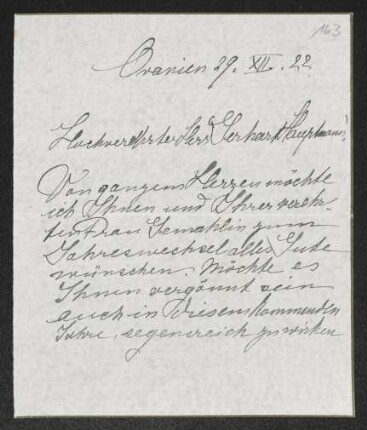 163
Oranien 29. XII. 22
Hochverehrter Herr Gerhart Hauptmann!
Von ganzem Herzen möchte
ich Ihnen und Ihrer verehr-
ten Frau Gemahlin zum
Jahreswechsel alles Gute
wünschen. Möchte es
Ihnen vergönnt sein
auch in diesem kommenden
Jahre, segensreich zu wirken